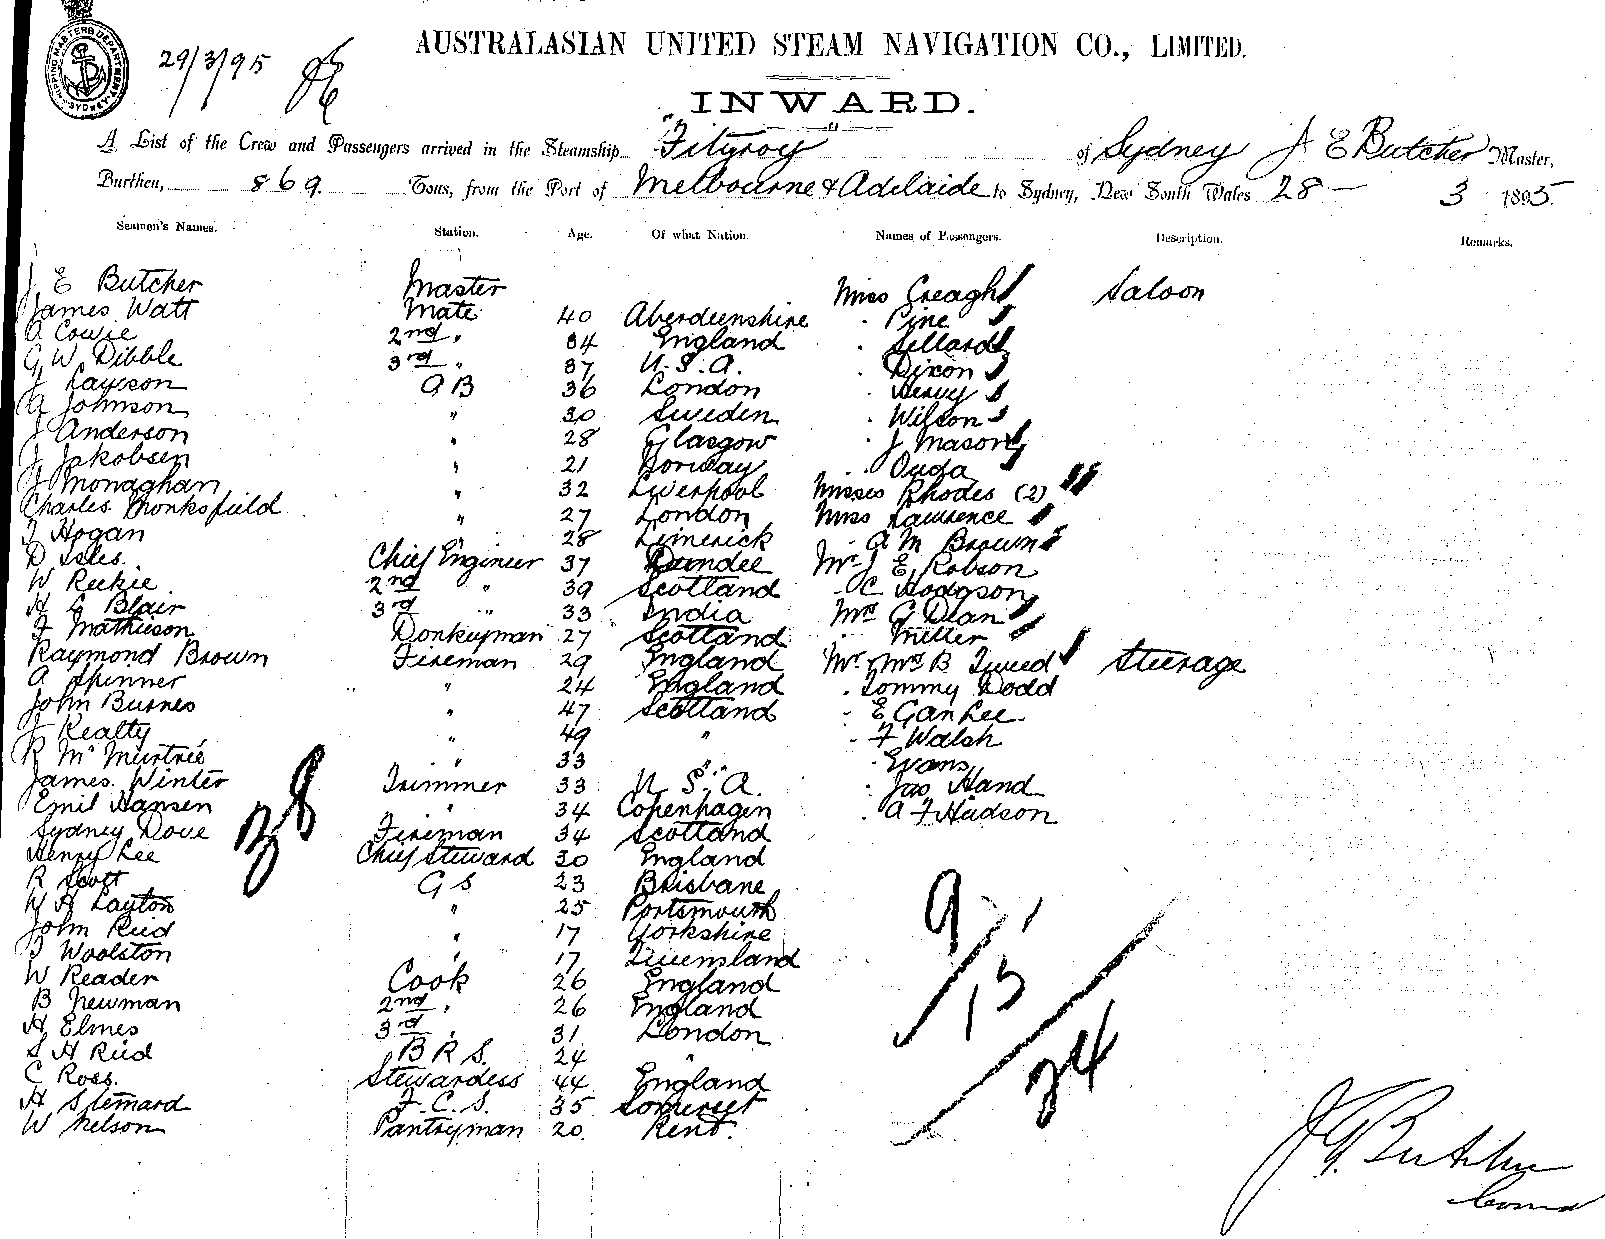 SHIPPING MASTERS DEPARTMENT SYDNEY
29/3/95
AUSTRALASIAN UNITED STEAM NAVIGATION CO., LIMITED.
INWARD.
A List of the Crew and Passengers arrived in the Steamship "Fitzroy" of Sydney J E Butcher Master,
Burthen, 869 Tons, from the Port of Melbourne & Adelaide to Sydney, New South Wales 28 - 3 1895
Seamen's Names. Station. Age. Of what Nation. Names of Passengers. Description. Remarks.
J E Butcher Master Miss Creagh Saloon
James Watt Mate 40 Aberdeenshire " Pine
A Cowie 2nd " 34 England "
G W Dibble 3rd " 37 U.S.A. " Dixon
J Layson A B 36 London "
A Johnson " 30 Sweden " Wilson
J Anderson " 28 Glasgow " J Mason
J Jakobsen " 21 Norway "
J Monaghan " 32 Liverpool Misses Rhodes (2)
Charles Monksfield " 27 London Miss Lawrence
T Hogan " 28 Limerick " A M Brown
D Isles Chief Engineer 37 Dundee Mr J E Robson
W Reekie 2nd " 39 Scotland " C Hodgson
H G Blair 3rd " 33 India Mrs G Dean
F Mathieson Donkeyman 27 Scotland " Miller
Raymond Brown Fireman 29 England Mr & Mrs B Tweed Steerage
A Skinner " 24 England " Tommy Dodd
John Burnes " 47 Scotland " E Gan Lee
J Realty " 49 " " F Walsh
R McMurtrie " 33 " " Evans
James Winter Trimmer 33 U.S.A. " Jas Hand
Emil Hansen " 34 Copenhagen " A F Hudson
Sydney Dove Fireman 34 Scotland
Henry Lee Chief Steward 30 England
R Scott G S 23 Brisbane
W H Layton " 25 Portsmouth
John Reid " 17 Yorkshire
Woolston " 17 Queensland
W Reader Cook 26 England
B Newman 2nd " 26 England
H Elmes 3rd " 31 London
S H Reid B R S. 24 "
C Ross. Stewardess 44 England
H Stemard F.C.S. 35 Somerset
W Nelson Pantryman 20 Kent.
38
9/15
24
J E Butcher